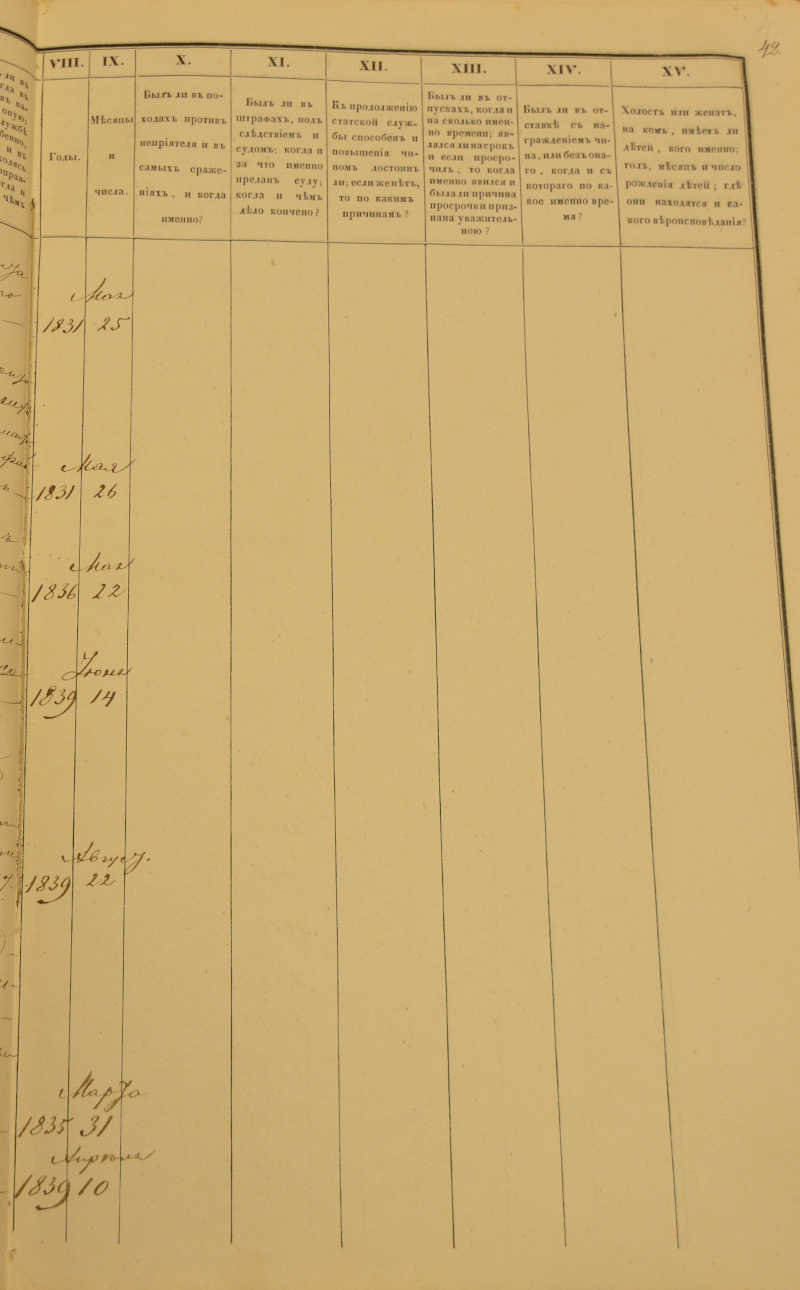 42.
VIII. IX. X. XI. XII. XIII. XIV. XV.
Годы.
Мѣсяцы
и
числа.
Былъ ли въ по-
ходахъ противъ
непріятеля и въ
самыхъ сраже-
ніяхъ, и когда
именно?
Былъ ли въ
штрафахъ, подъ
слѣдствіемъ и
судомъ; когда и
за что именно
преданъ суду;
когда и чѣмъ
дѣло кончено?
Къ продолженію
статской служ-
бы способенъ и
повышенія чи-
номъ достоинъ
ли; если женѣтъ,
то по какимъ
причинамъ?
Былъ ли въ от-
пускахъ, когда и
на сколько имен-
но времени; яв-
лялся ли на срокъ
и если просро-
чилъ, то когда
именно явился и
была ли причина
просрочки приз-
нана уважитель-
ною?
Былъ ли въ от-
ставкѣ съ на-
гражденіемъ чи-
на, или безъ она-
го, когда и съ
котораго по ка-
кое именно вре-
мя?
Холостъ или женатъ,
на комъ, имѣетъ ли
дѣтей, кого именно;
годъ, мѣсяцъ и число
рожденія дѣтей; гдѣ
они находятся и ка-
кого вѣроисповѣданія?
Мая
1831 25
Мая
1831 26
Мая
1836 22
Іюня
1839 14
Август.
1839 22
Марта
1835 31
1839 10